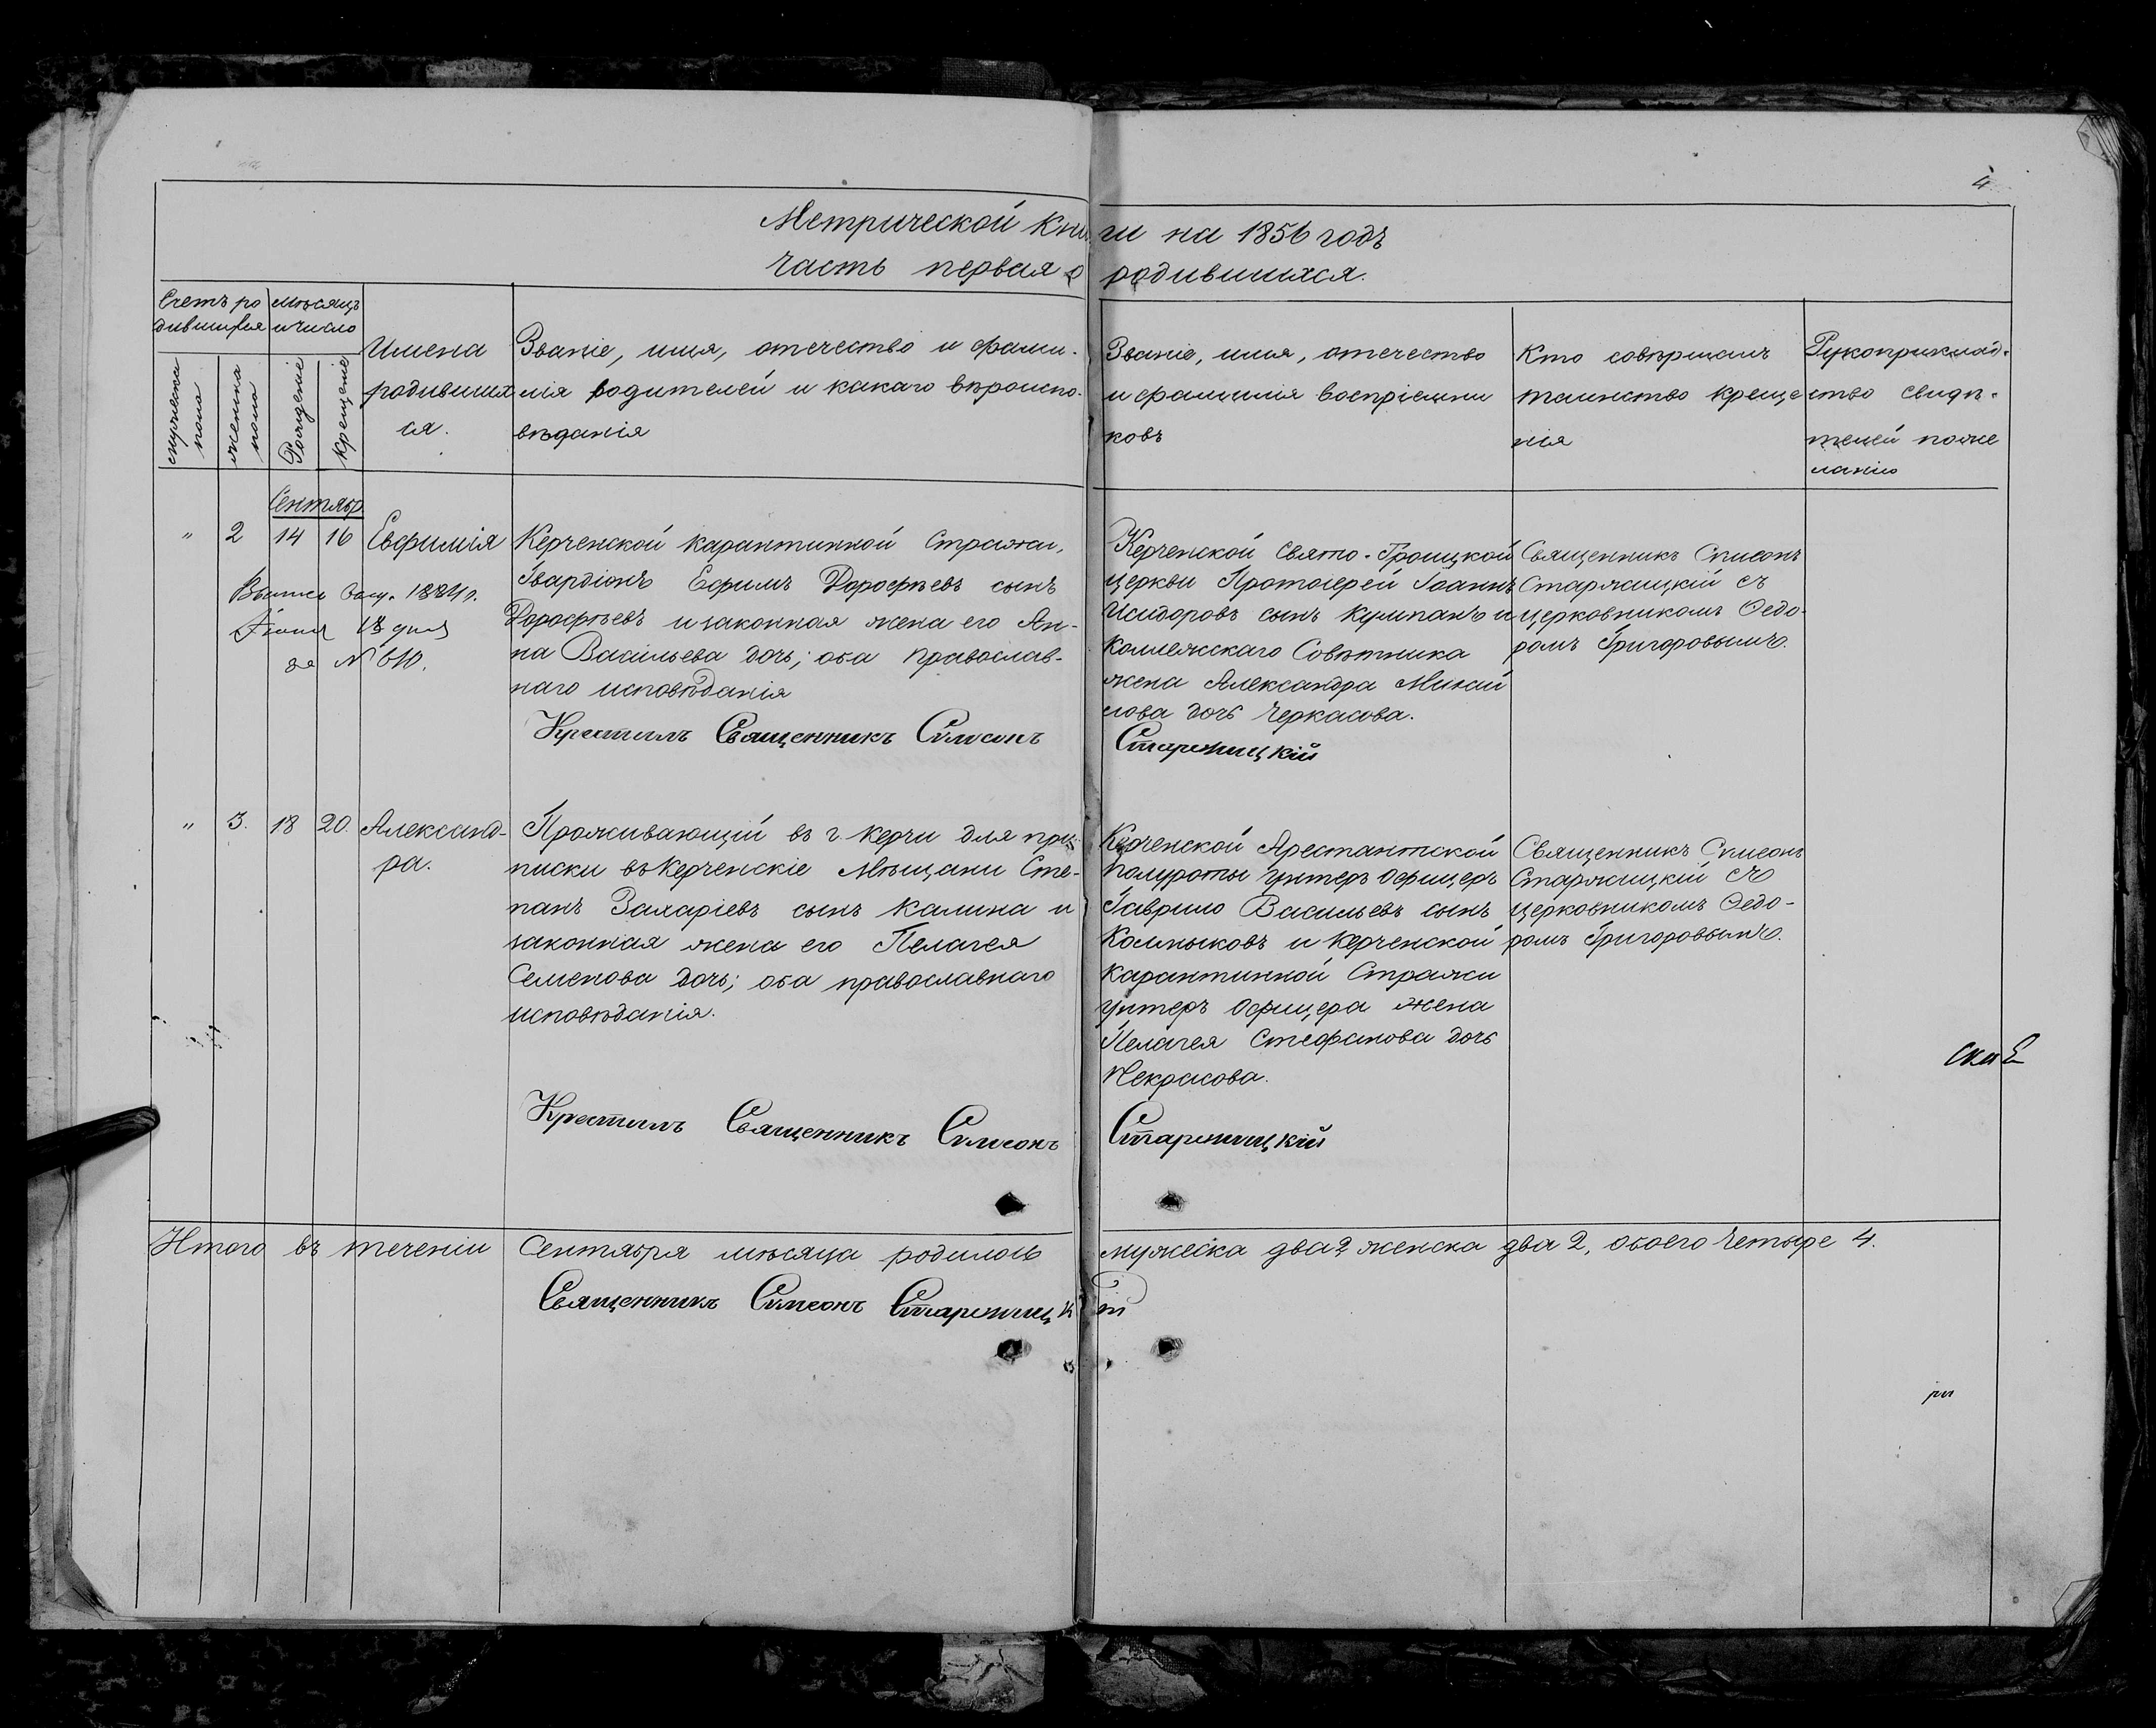 4
Метрической Книги на 1856 годъ
Часть первая о родившихся.
Счетъ ро
дившихся
мѣсяцъ
и число
мужеска
пола
женска
пола
Рожденіе
Крещеніе
Имена
родивших
ся.
Званіе, имя, отечество и фами-
лія родителей и какаго вѣроиспо-
вѣданія
Званіе, имя, отечество
и фамилія воспріемни
ковъ
Кто совѣршалъ
таинство Креще
нія
Рукоприклад-
ство свидѣ-
телей поже
ланію
Сентябр
" 2 14 16 Евфимія
Выпись выд. 1884 г.
Іюня 18 дня
за № 610.
Керченской карантинной Стражи,
Гвардіонъ Ефимъ Дорофѣевъ сынъ
Дорофѣевъ и законная жена его Ан-
на Васильева дочь; оба Православ-
наго исповѣданія
Крестилъ Священникъ Симеонъ
Керченской Свято-Троицкой
церкви Протоіерей Іоаннъ
Исидоровъ сынъ Кумпанъ и
Коллежскаго Совѣтника
жена Александра Михай
лова дочь Черкасова.
Старжицкій
Священникъ Симеонъ
Старжицкій съ
церковникомъ Ѳедо-
ромъ Григоровымъ.
" 3. 18 20. Александ-
ра.
Проживающій въ г. Керчи для при-
писки въ Керченскіе Мѣщани Сте-
панъ Захаріевъ сынъ Калина и
законная жена его Пелагея
Семенова дочь; оба православнаго
исповѣданія.
Крестилъ Священникъ Симеонъ
Керченской Арестантской
полуроты Унтеръ Офицеръ
Гаврило Васильевъ сынъ
Колмыковъ и Керченской
Карантинной Стражи
Унтеръ Офицера жена
Пелагея Стефанова дочь
Некрасова.
Старжицкій
Священникъ Симеонъ
Старжицкій съ
церковникомъ Ѳедо-
ромъ Григоровымъ.
Итого въ теченіи Сентября мѣсяца родилось мужеска два 2 женска два 2, обоего четыре 4.
Священникъ Симеонъ Старжицкій